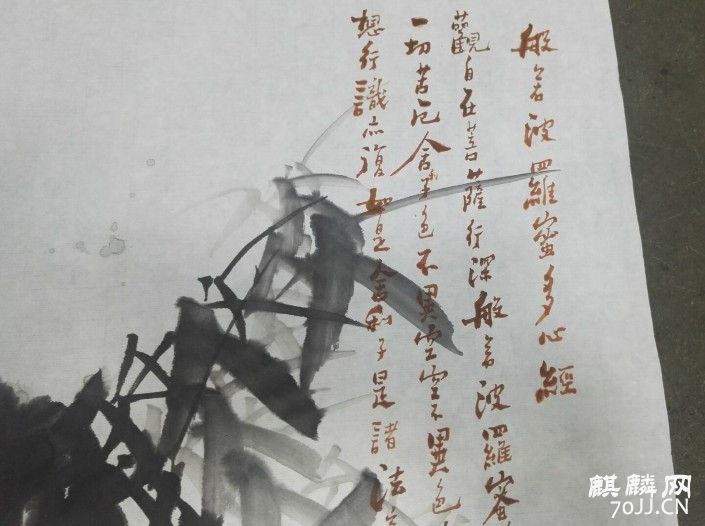 般若波羅蜜多心經
觀自在菩薩行深般若波羅蜜
一切苦厄舍利子色不異空空不異色
想行識亦復如是舍利子是諸法
麒麟网
70JJ.CN